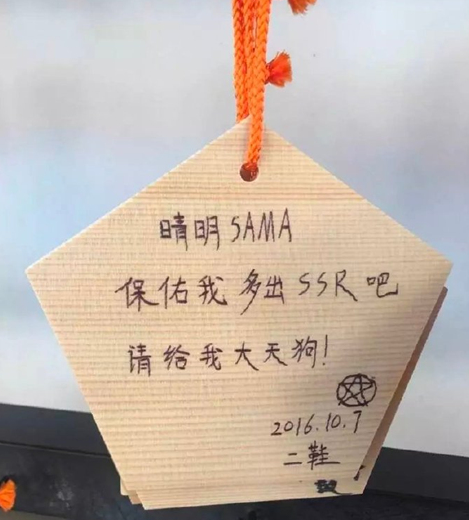 晴明SAMA
保佑我多出SSR吧
请给我大天狗!
2016.10.7
二鞋